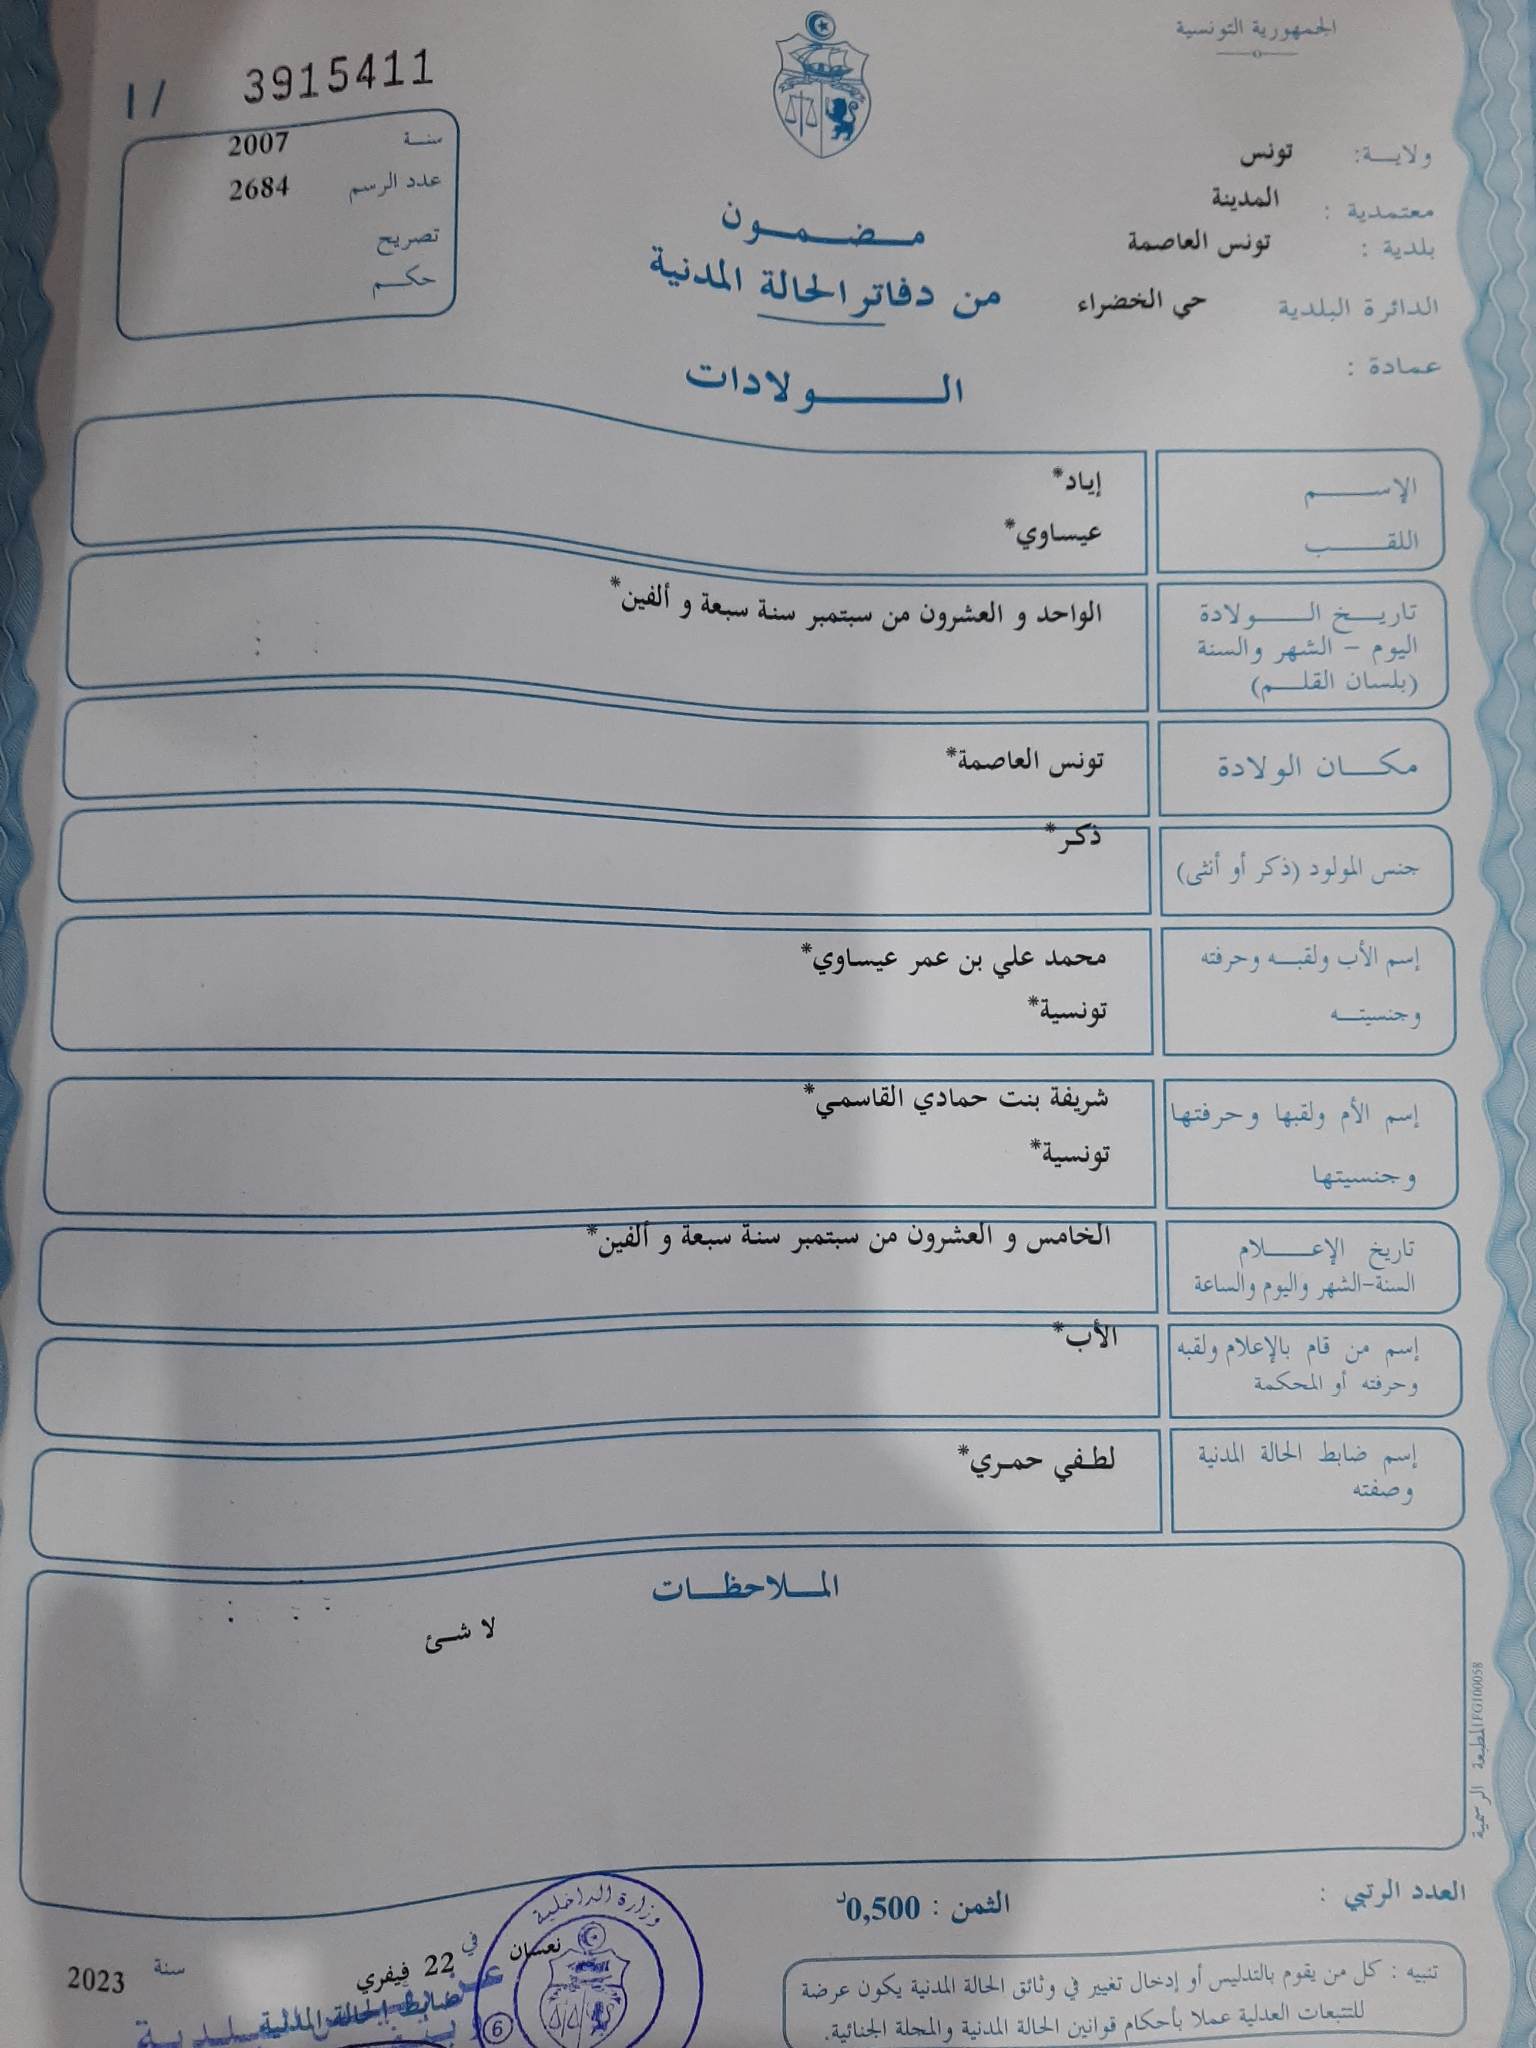 الجمهورية التونسية
3915411 / 1
ولاية: تونس
معتمدية : المدينة
بلدية : تونس العاصمة
الدائرة البلدية حي الخضراء
عمادة :
سنة 2007
عدد الرسم 2684
تصريح
حكم
مضمون
من دفاتر الحالة المدنية
الولادات
الإسم إياد*
اللقب عيساوي*
تاريخ الولادة الواحد و العشرون من سبتمبر سنة سبعة و ألفين*
اليوم - الشهر والسنة
(بلسان القلم)
مكان الولادة تونس العاصمة*
جنس المولود (ذكر أو أنثى) ذكر*
إسم الأب ولقبه وحرفته محمد علي بن عمر عيساوي*
وجنسيته تونسية*
إسم الأم ولقبها وحرفتها شريفة بنت حمادي القاسمي*
وجنسيتها تونسية*
تاريخ الإعلام الخامس و العشرون من سبتمبر سنة سبعة و ألفين*
السنة-الشهر واليوم والساعة
إسم من قام بالإعلام ولقبه الأب*
وحرفته أو المحكمة
إسم ضابط الحالة المدنية لطفي حمري*
وصفته
الملاحظات
لا شئ
المطبعة الرسمية IFG100058
العدد الرتبي :
الثمن : 0,500د
تنبيه : كل من يقوم بالتدليس أو إدخال تغيير في وثائق الحالة المدنية يكون عرضة
للتتبعات العدلية عملا بأحكام قوانين الحالة المدنية والمجلة الجنائية.
وزارة الداخلية
6
نعسان في 22 فيفري سنة 2023
ضابط الحالة المدنية